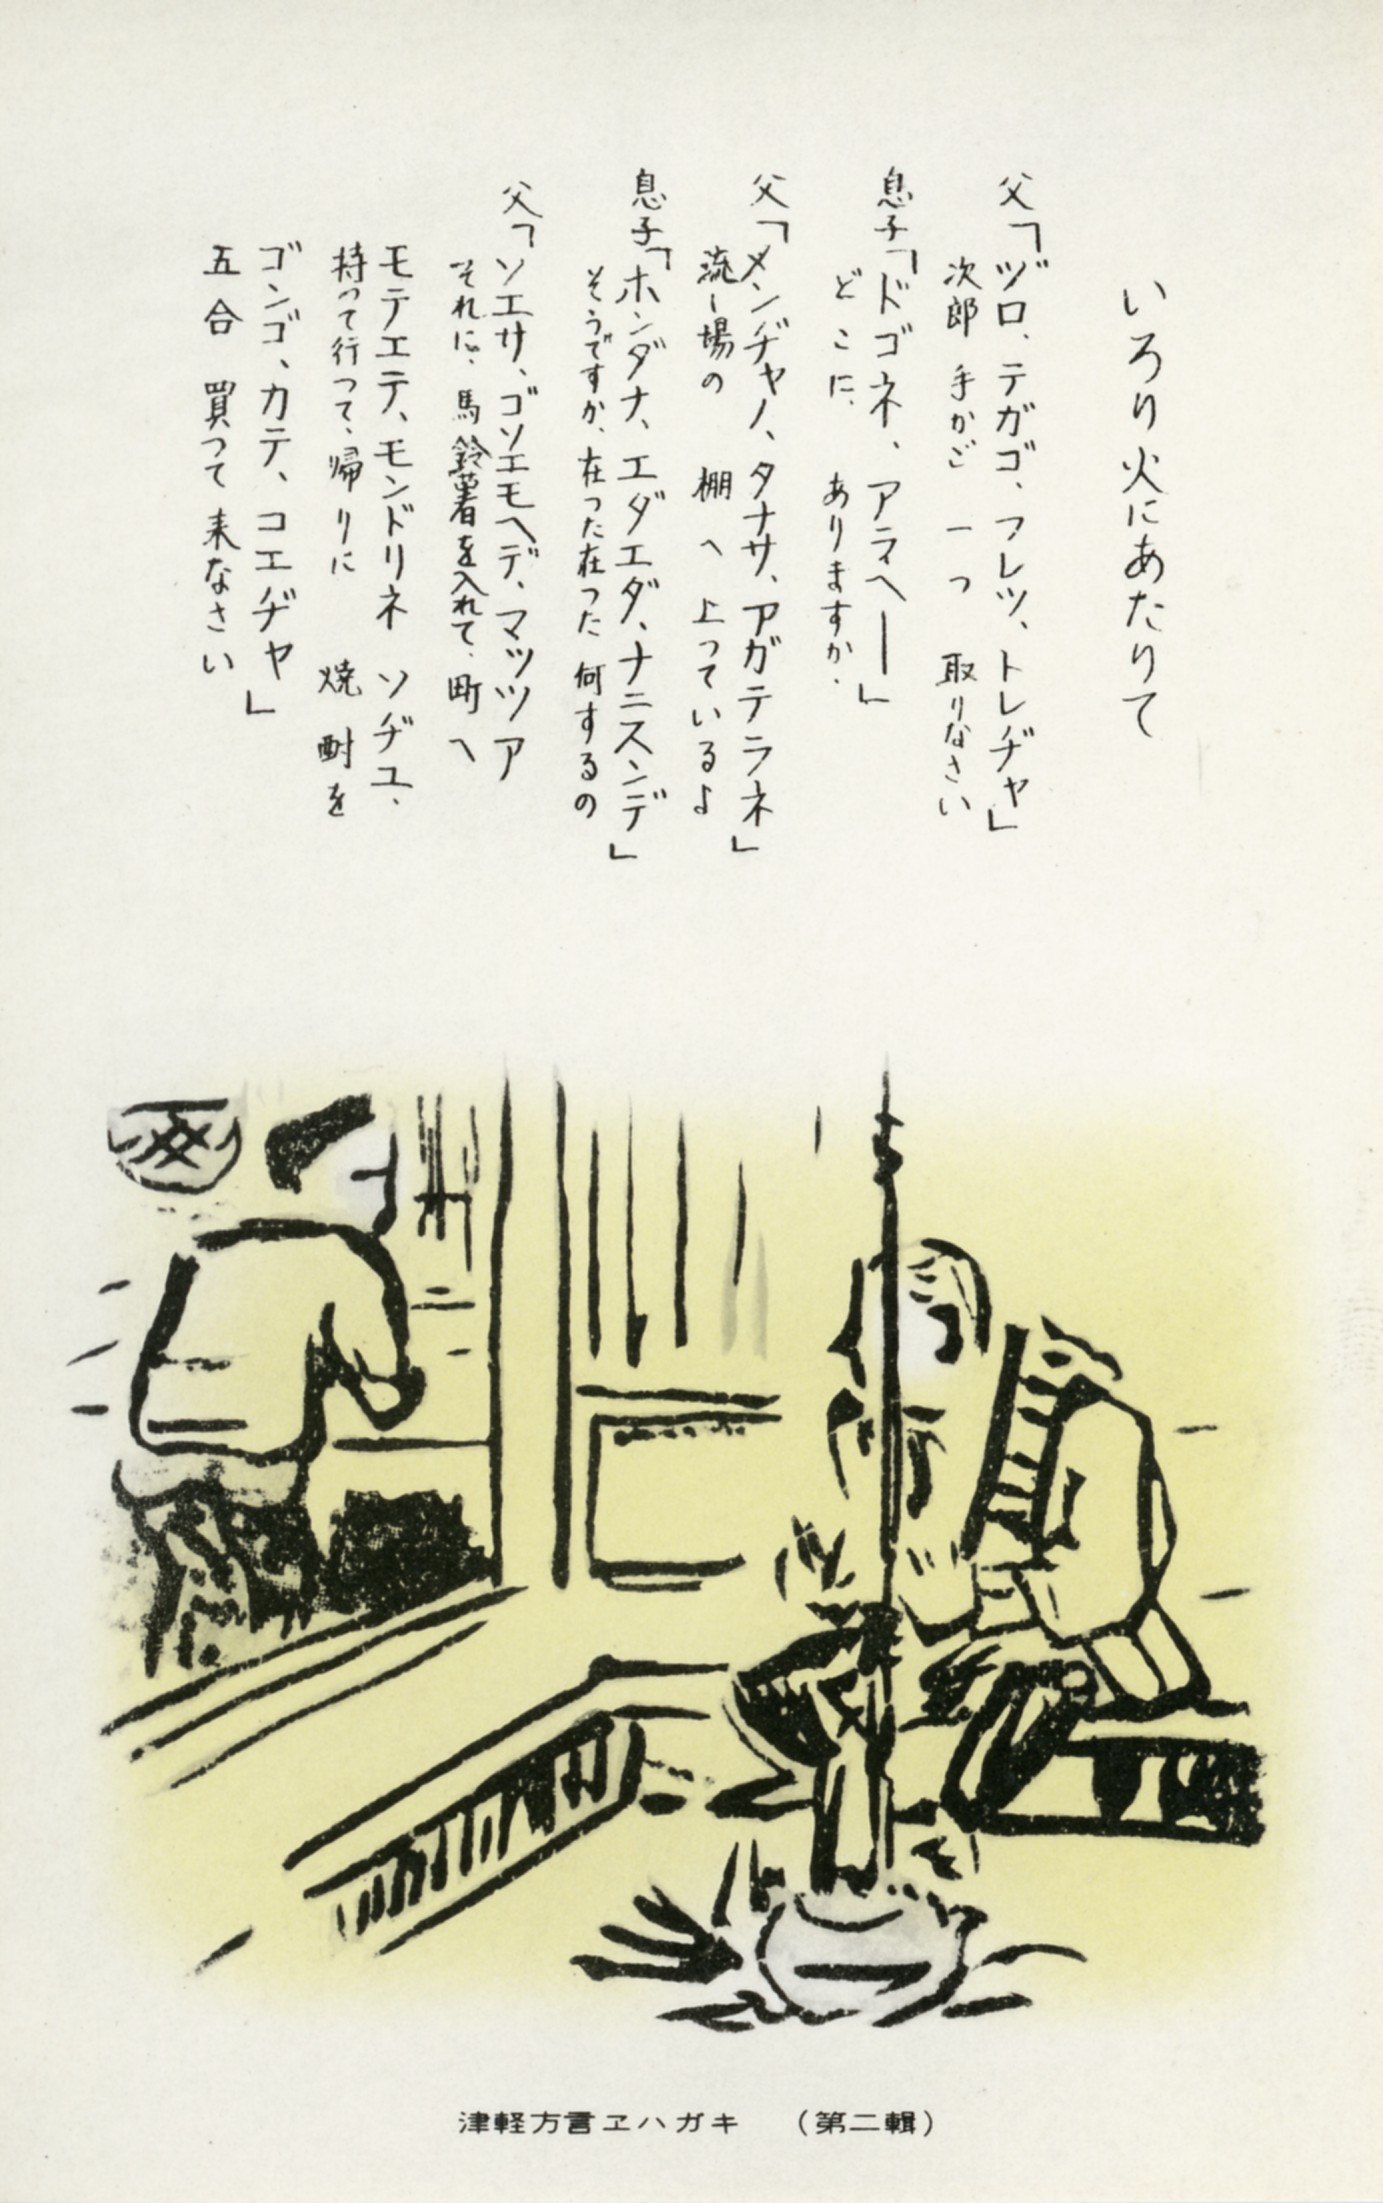 いろり火にあたりて
父「ヅロ、テガゴ、フレツ、トレヂャ」
次郎 手かご 一つ 取りなさい
息子「ドゴネ、アラヘー」
どこに、ありますか.
父「メンヂャノ、タナサ、アガテラネ」
流し場の 棚へ 上っているよ
息子「ホンダナ、エダエダ、ナニスンデ」
そうですか、在った在った 何するの
父「ソエサ、ゴソエモヘデ、マッツア
それに、馬鈴薯を入れて、町へ
モテエテ、モンドリネ ソヂユ、
持って行って、帰りに 焼酎を
ゴンゴ、カテ、コエヂャ」
五合 買って 来なさい
津軽方言ヱハガキ (第二輯)